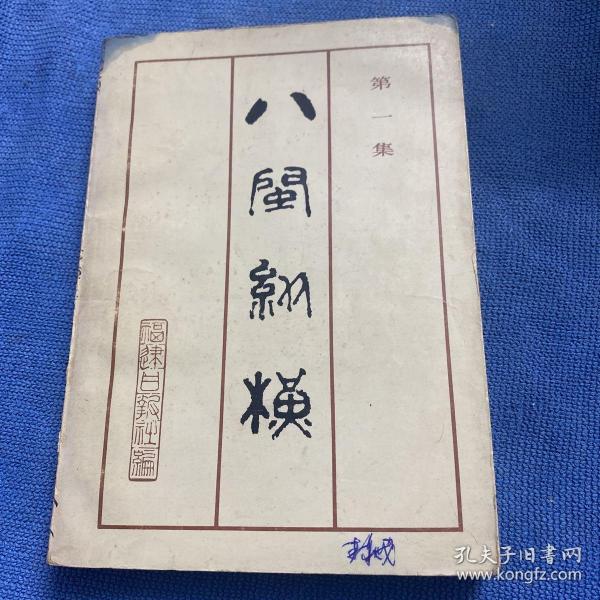 第一集
八閩縱橫
福建日報社編
孔夫子旧书网
www.kongfz.com